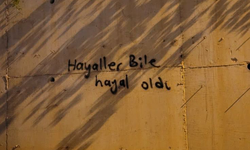 Hayaller Bile
hayal oldu